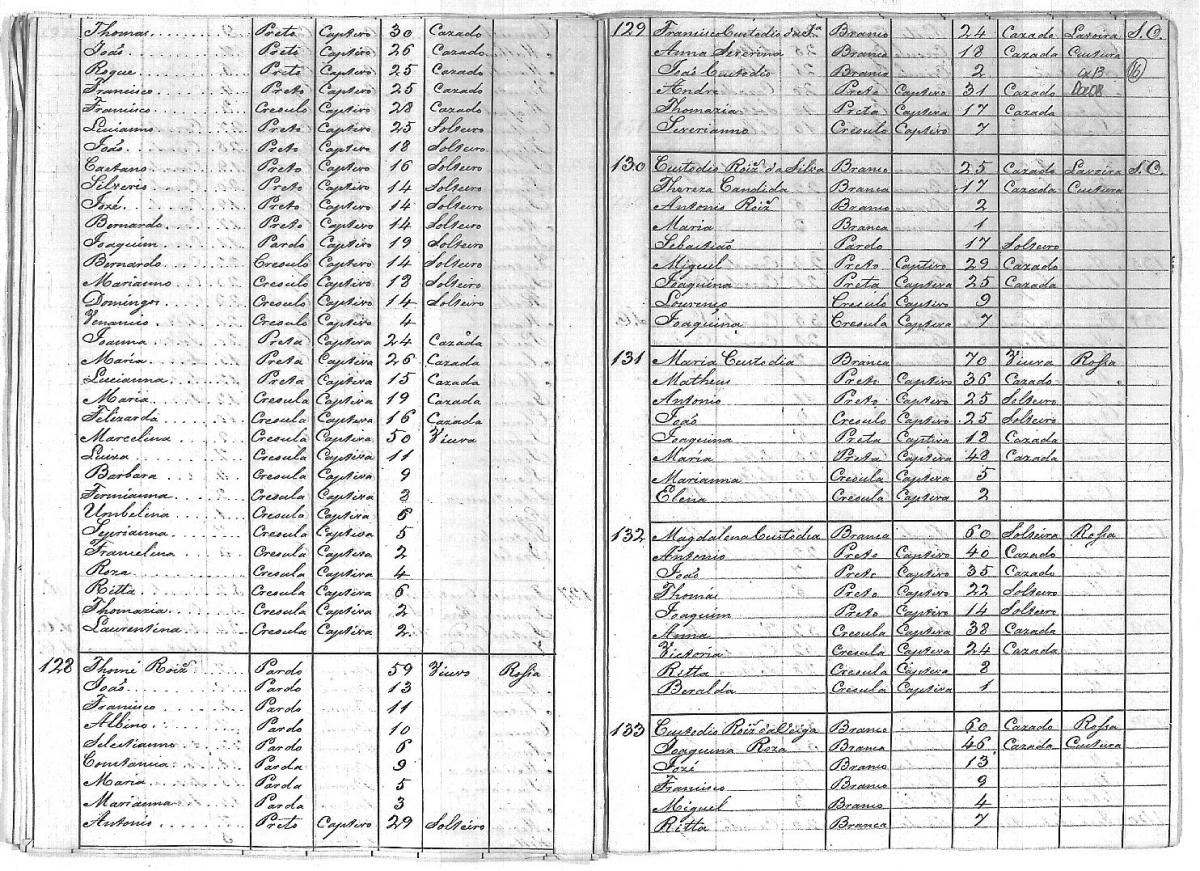 Thomas Preto Captivo 30 Cazado
Joaõ Preto Captivo 26 Cazado
Roque Preto Captivo 25 Cazado
Francisco Preto Captivo 25 Cazado
Francisco Creoulo Captivo 28 Cazado
Lucianno Preto Captivo 25 Solteiro
Joaõ Preto Captivo 18 Solteiro
Caetano Preto Captivo 16 Solteiro
Silverio Preto Captivo 14 Solteiro
Jozé Preto Captivo 14 Solteiro
Bernardo Preto Captivo 14 Solteiro
Joaquim Pardo Captivo 19 Solteiro
Bernardo Creoulo Captivo 14 Solteiro
Marianno Creoulo Captivo 18 Solteiro
Domingos Creoulo Captivo 14 Solteiro
Venancio Creoulo Captivo 4
Joanna Preta Captiva 24 Cazada
Maria Preta Captiva 26 Cazada
Lucianna Preta Captiva 15 Cazada
Maria Creoula Captiva 19 Cazada
Felizarda Creoula Captiva 16 Cazada
Marcelina Creoula Captiva 50 Viuva
Luiza Creoula Captiva 11
Barbara Creoula Captiva 9
Firmianna Creoula Captiva 8
Umbelina Creoula Captiva 6
Creoula Captiva 5
Francelina Creoula Captiva 2
Roza Creoula Captiva 4
Ritta Creoula Captiva 6
Thomazia Creoula Captiva 2
Laurentina Creoula Captiva 2
128 Thomé Roiz Pardo 59 Viuvo Rossa
Joaõ Pardo 13
Francisco Pardo 11
Albino Pardo 10
Selestianno Pardo 6
Constancia Parda 9
Maria Parda 5
Marianna Parda 3
Antonio Preto Captivo 29 Solteiro
129 Francisco Custodio da Sª Branco 24 Cazado Lavoira S.O.
Anna Severina Branca 18 Cazada Custura
Joaõ Custodio Branco 2
16
Andre Preto Captivo 31 Cazado
Thomazia Preta Captiva 17 Cazada
Severianno Creoulo Captivo 7
130 Custodio Roiz da Silva Branco 25 Cazado Lavoira S.O.
Thereza Candida Branca 17 Cazada Custura
Antonio Roiz Branco 2
Maria Branca 1
Sebastiaõ Pardo 17 Solteiro
Miguel Preto Captivo 29 Cazado
Joaquina Preta Captiva 25 Cazada
Lourenço Creoulo Captivo 9
Joaquina Creoula Captiva 7
131 Maria Custodia Branca 70 Viuva Rossa
Matheus Preto Captivo 36 Cazado
Antonio Preto Captivo 25 Solteiro
Joaõ Creoulo Captivo 25 Solteiro
Joaquina Preta Captiva 18 Cazada
Maria Preta Captiva 48 Cazada
Marianna Creoula Captiva 5
Elena Creoula Captiva 2
132 Magdalena Custodia Branca 60 Solteira Rossa
Antonio Preto Captivo 40 Cazado
Joaõ Preto Captivo 35 Cazado
Thomas Preto Captivo 22 Solteiro
Joaquim Preto Captivo 14 Solteiro
Anna Creoula Captiva 38 Cazada
Victoria Creoula Captiva 24 Cazada
Ritta Creoula Captiva 8
Beralda Creoula Captiva 1
133 Custodio Roiz da Veiga Branco 60 Cazado Rossa
Joaquina Roza Branca 46 Cazada Custura
Jozé Branco 13
Francisco Branco 9
Miguel Branco 4
Ritta Branca 7